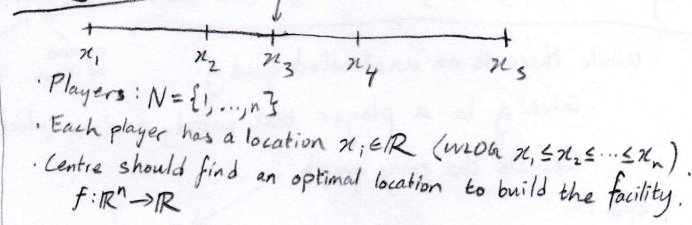 x₁ x₂ x₃ x₄ x₅
· Players : N = {1, ..., n}
· Each player has a location xᵢ ∈ ℝ (WLOG x₁ ≤ x₂ ≤ ··· ≤ xₙ).
· Centre should find an optimal location to build the facility.
f : ℝⁿ → ℝ